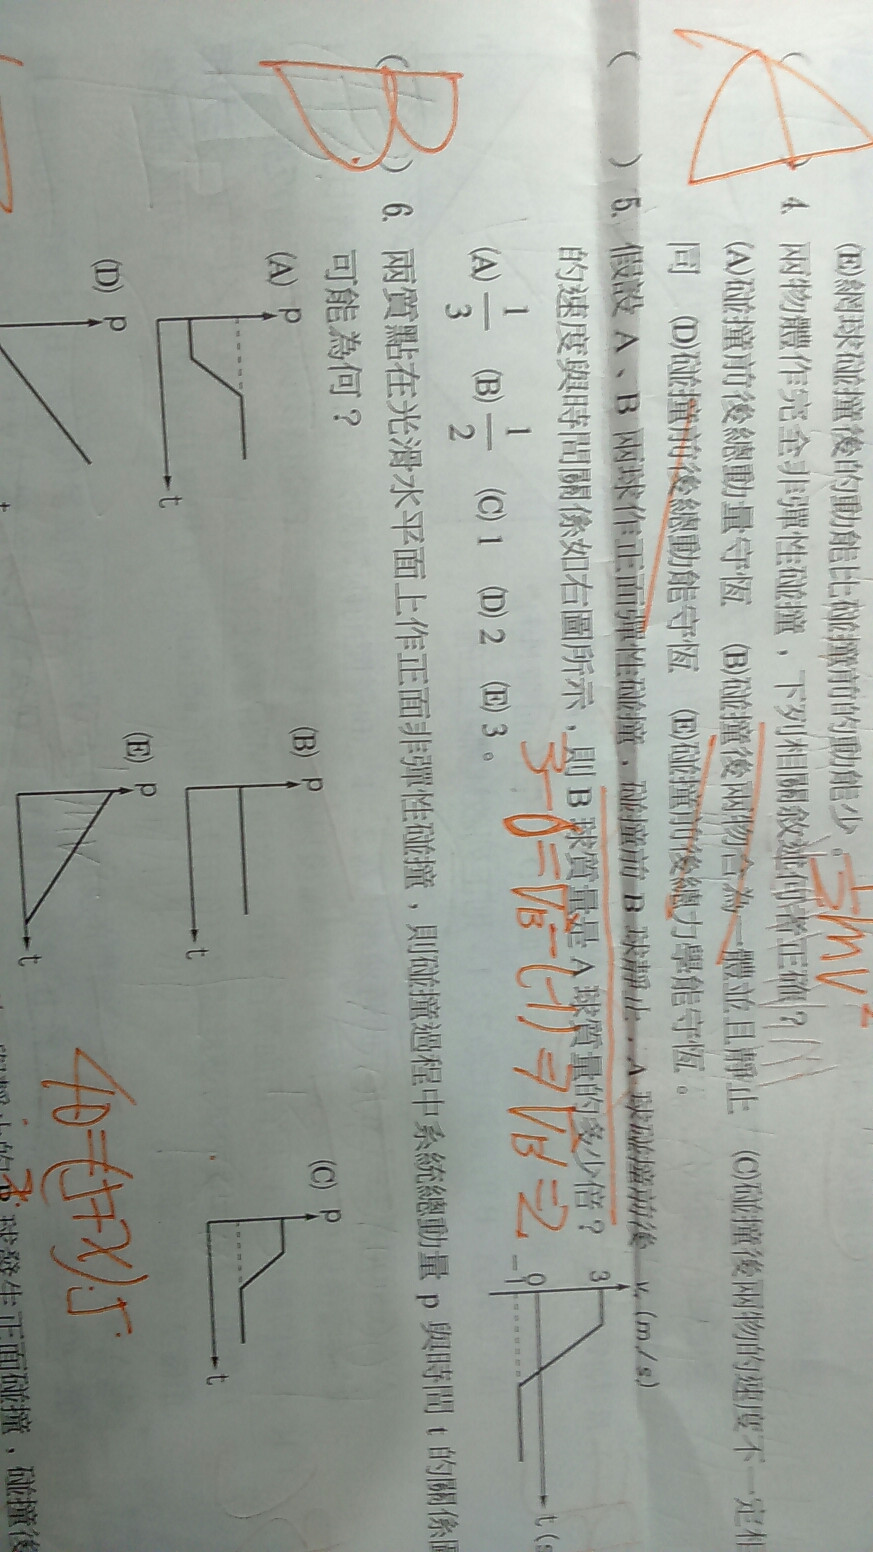 (E)網球碰撞後的動能比碰撞前的動能少。
½mv²
A
( ) 4. 兩物體作完全非彈性碰撞,下列相關敘述何者正確?
(A)碰撞前後總動量守恆 (B)碰撞後兩物合為一體並且靜止 (C)碰撞後兩物的速度不一定相
同 (D)碰撞前後總動能守恆 (E)碰撞前後總力學能守恆。
( ) 5. 假設 A、B 兩球作正面彈性碰撞,碰撞前 B 球靜止,A 球碰撞前後
的速度與時間關係如右圖所示,則 B 球質量是 A 球質量的多少倍?
(A) 1/3 (B) 1/2 (C) 1 (D) 2 (E) 3。
3-0=VB-(-1)⇒VB=2
v (m/s)
3
0
-1
t (s
B
( ) 6. 兩質點在光滑水平面上作正面非彈性碰撞,則碰撞過程中系統總動量 p 與時間 t 的關係
可能為何?
(A) p t
(B) p t
(C) p t
(D) p t
(E) p t
球發生正面碰撞,碰撞後